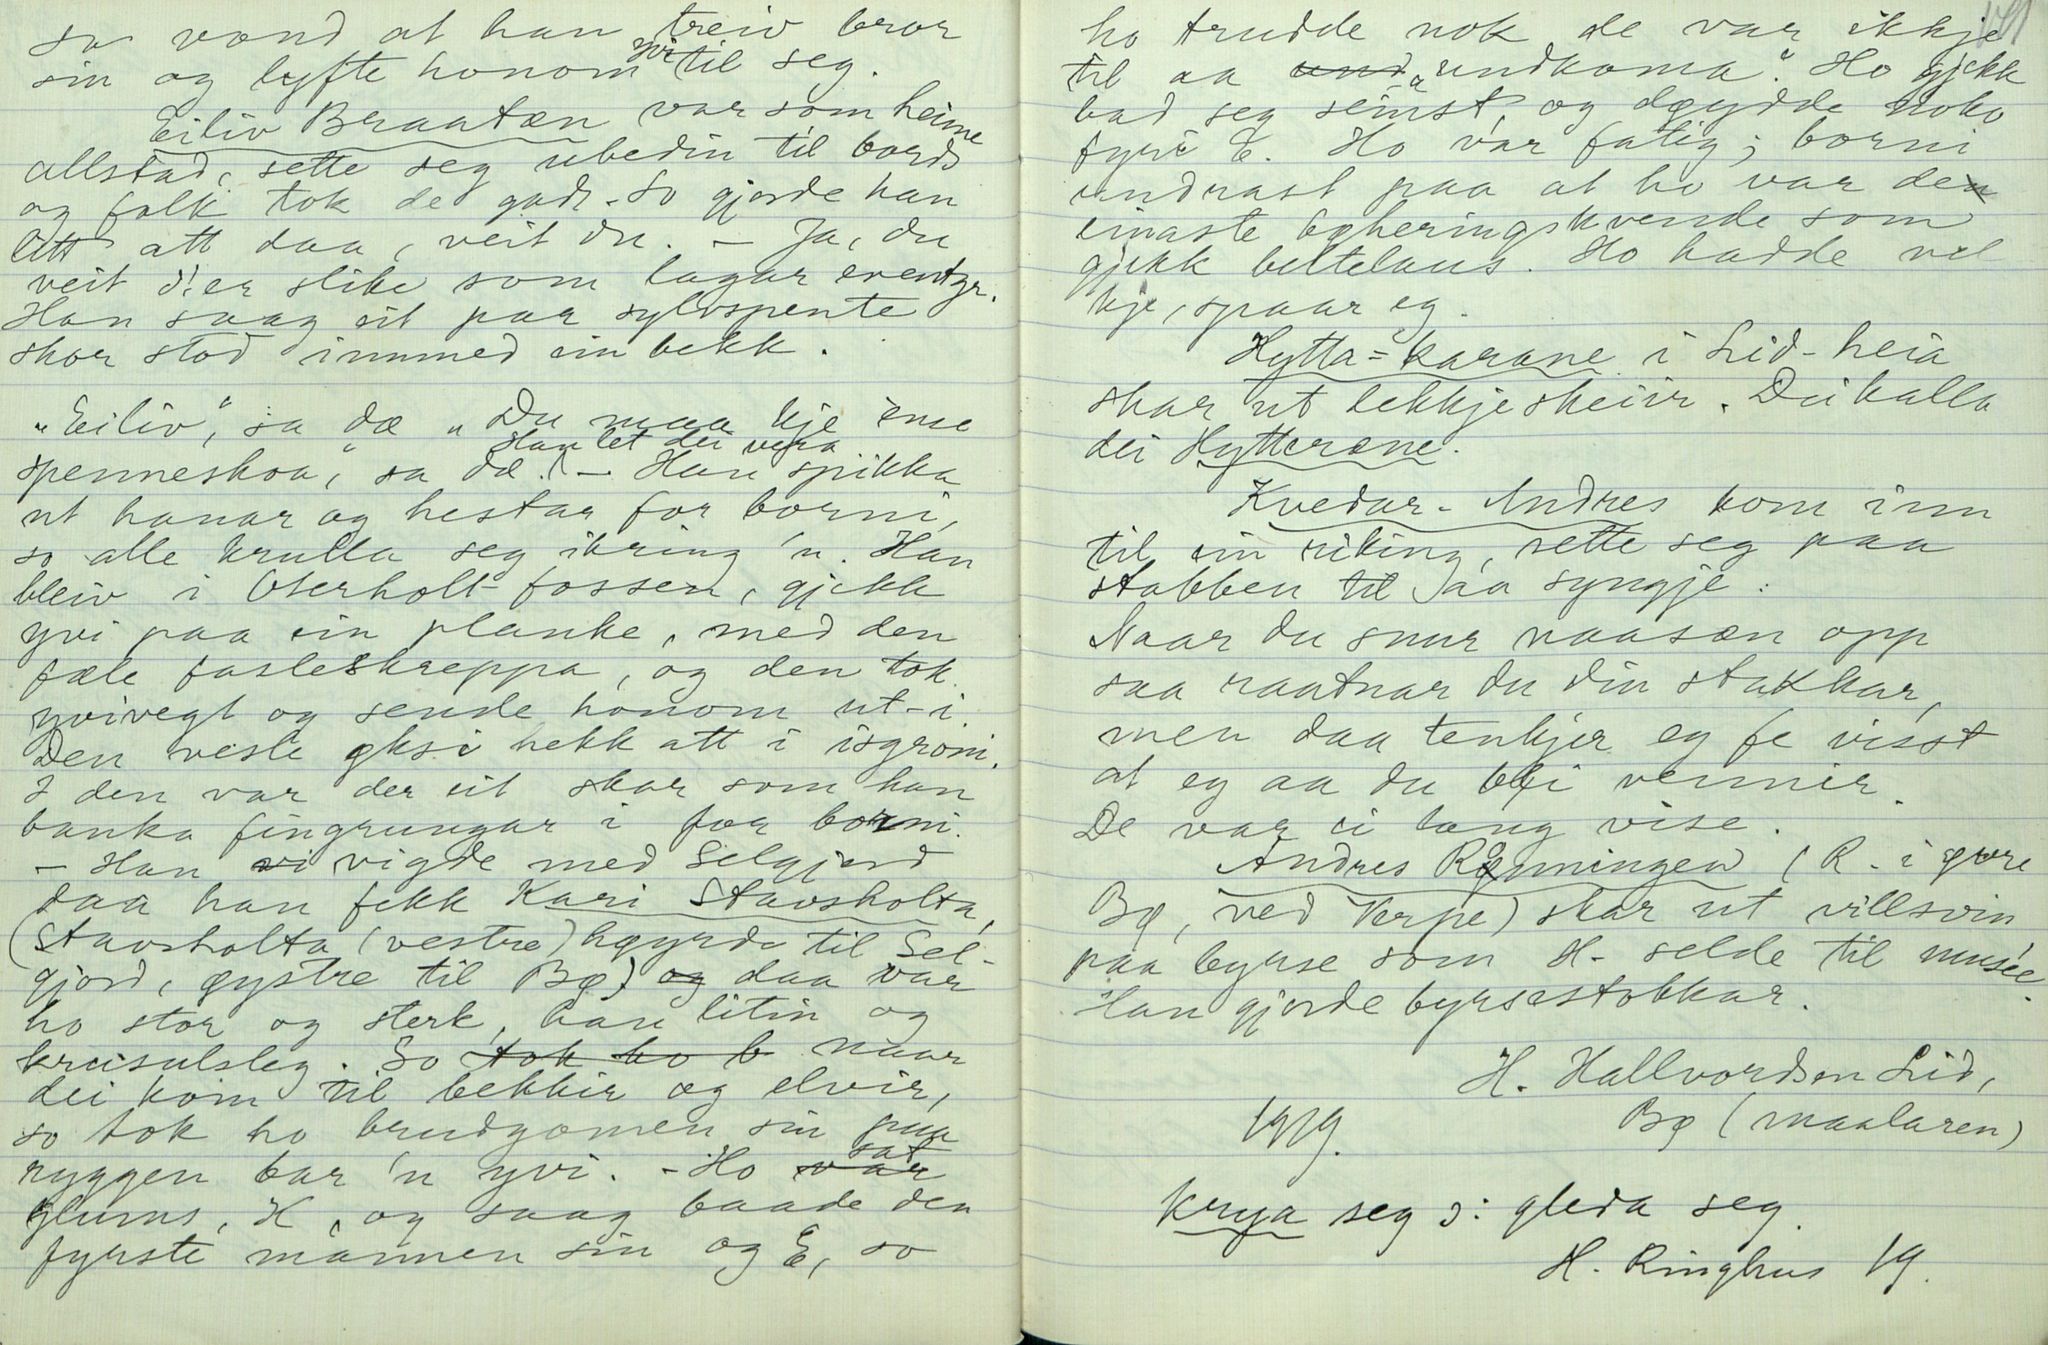 so vond at han treiv bror
sin og lyfte honom yvi til seg.
Eiliv Braaten var som heime
allstad, sette seg ubedin til bords
og folk tok de godt. So gjorde han
litt att daa, veit du. – Ja, du
veit d'er slike som lagar eventyr.
Han saag eit par sylvspente
skor stod innmed ein bekk.
"Eiliv," sa dæ "Du maa kje ense
spenneskoa," sa dæ. Han let dei vera – Han spikka
ut hanar og hestar for borni,
so alle krulla seg ikring 'n. Han
bleiv i Oterholt-fossen, gjekk
yvi paa ein planke, med den
fæle fasleskreppa, og den tok
yvivegt og sende honom ut-i.
Den vesle øksi hekk att i isgroni.
I den var der eit skar som han
banka fingrungar i for borni.
– Han vi vigde med Selgjord
daa han fekk Kari Stavsholta,
(Stavsholta (vestre) høyrde til Sel-
gjord, øystre til Bø) og daa var
ho stor og sterk, han litin og
kreisulsleg. So tok ho b naar
dei kom til bekkir og elvir,
so tok ho brudgomen sin paa
ryggen bar 'n yvi. – Ho var sat
glums, K, og saag baade den
fyrste mannen sin og E, so
ho trudde nok de var ikkje
til aa und "undkoma". Ho gjekk
bad seg seinst, og døydde noko
fyri E. Ho var fatig; borni
undrast paa at ho var den
einaste kjeringskvende som
gjekk beltelaus. Ho hadde vel
kje, spaar eg.
Hytta=karane i Lid-heia
skar ut lekkjeskeiir. Dei kalla
dei Hytterane.
Kvedar-Andres kom inn
til ein riking, sette seg paa
stabben til aa syngje:
Naar du snur naasæn opp
saa raatnar du din stakkar,
men daa tenkjer eg fe visst
at eg aa du blei vennir.
De var ei lang vise.
Andres Rønningen (R. i øvre
Bø, ved Verpe) skar ut villsvin
paa byrse som H. selde til musée.
Han gjorde byrsestokkar.
H. Hallvordsen Lid,
1919. Bø (maalaren)
Krya seg ɔ: gleda seg.
H. Ringhus 19.